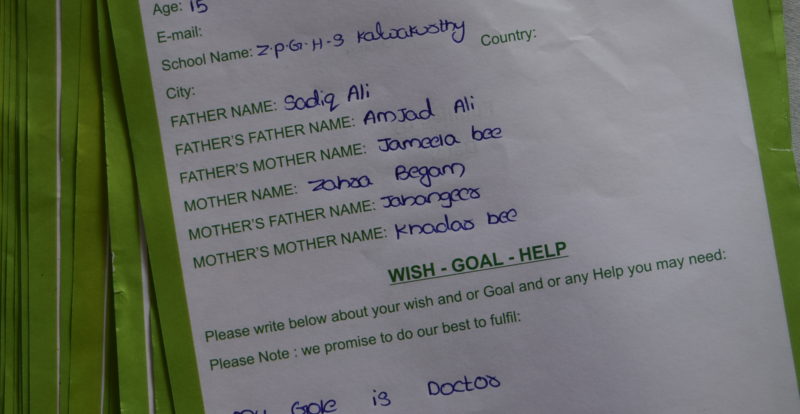 Age: 15
E-mail:
School Name: Z.P.G.H.S Kalwakurthy Country:
City:
FATHER NAME: Sadiq Ali
FATHER'S FATHER NAME: Amjad Ali
FATHER'S MOTHER NAME: Jameela bee
MOTHER NAME: Zahra Begam
MOTHER'S FATHER NAME: Jahangeer
MOTHER'S MOTHER NAME: Khadar bee
WISH - GOAL - HELP
Please write below about your wish and or Goal and or any Help you may need:
Please Note : we promise to do our best to fulfil:
Gole is Doctor